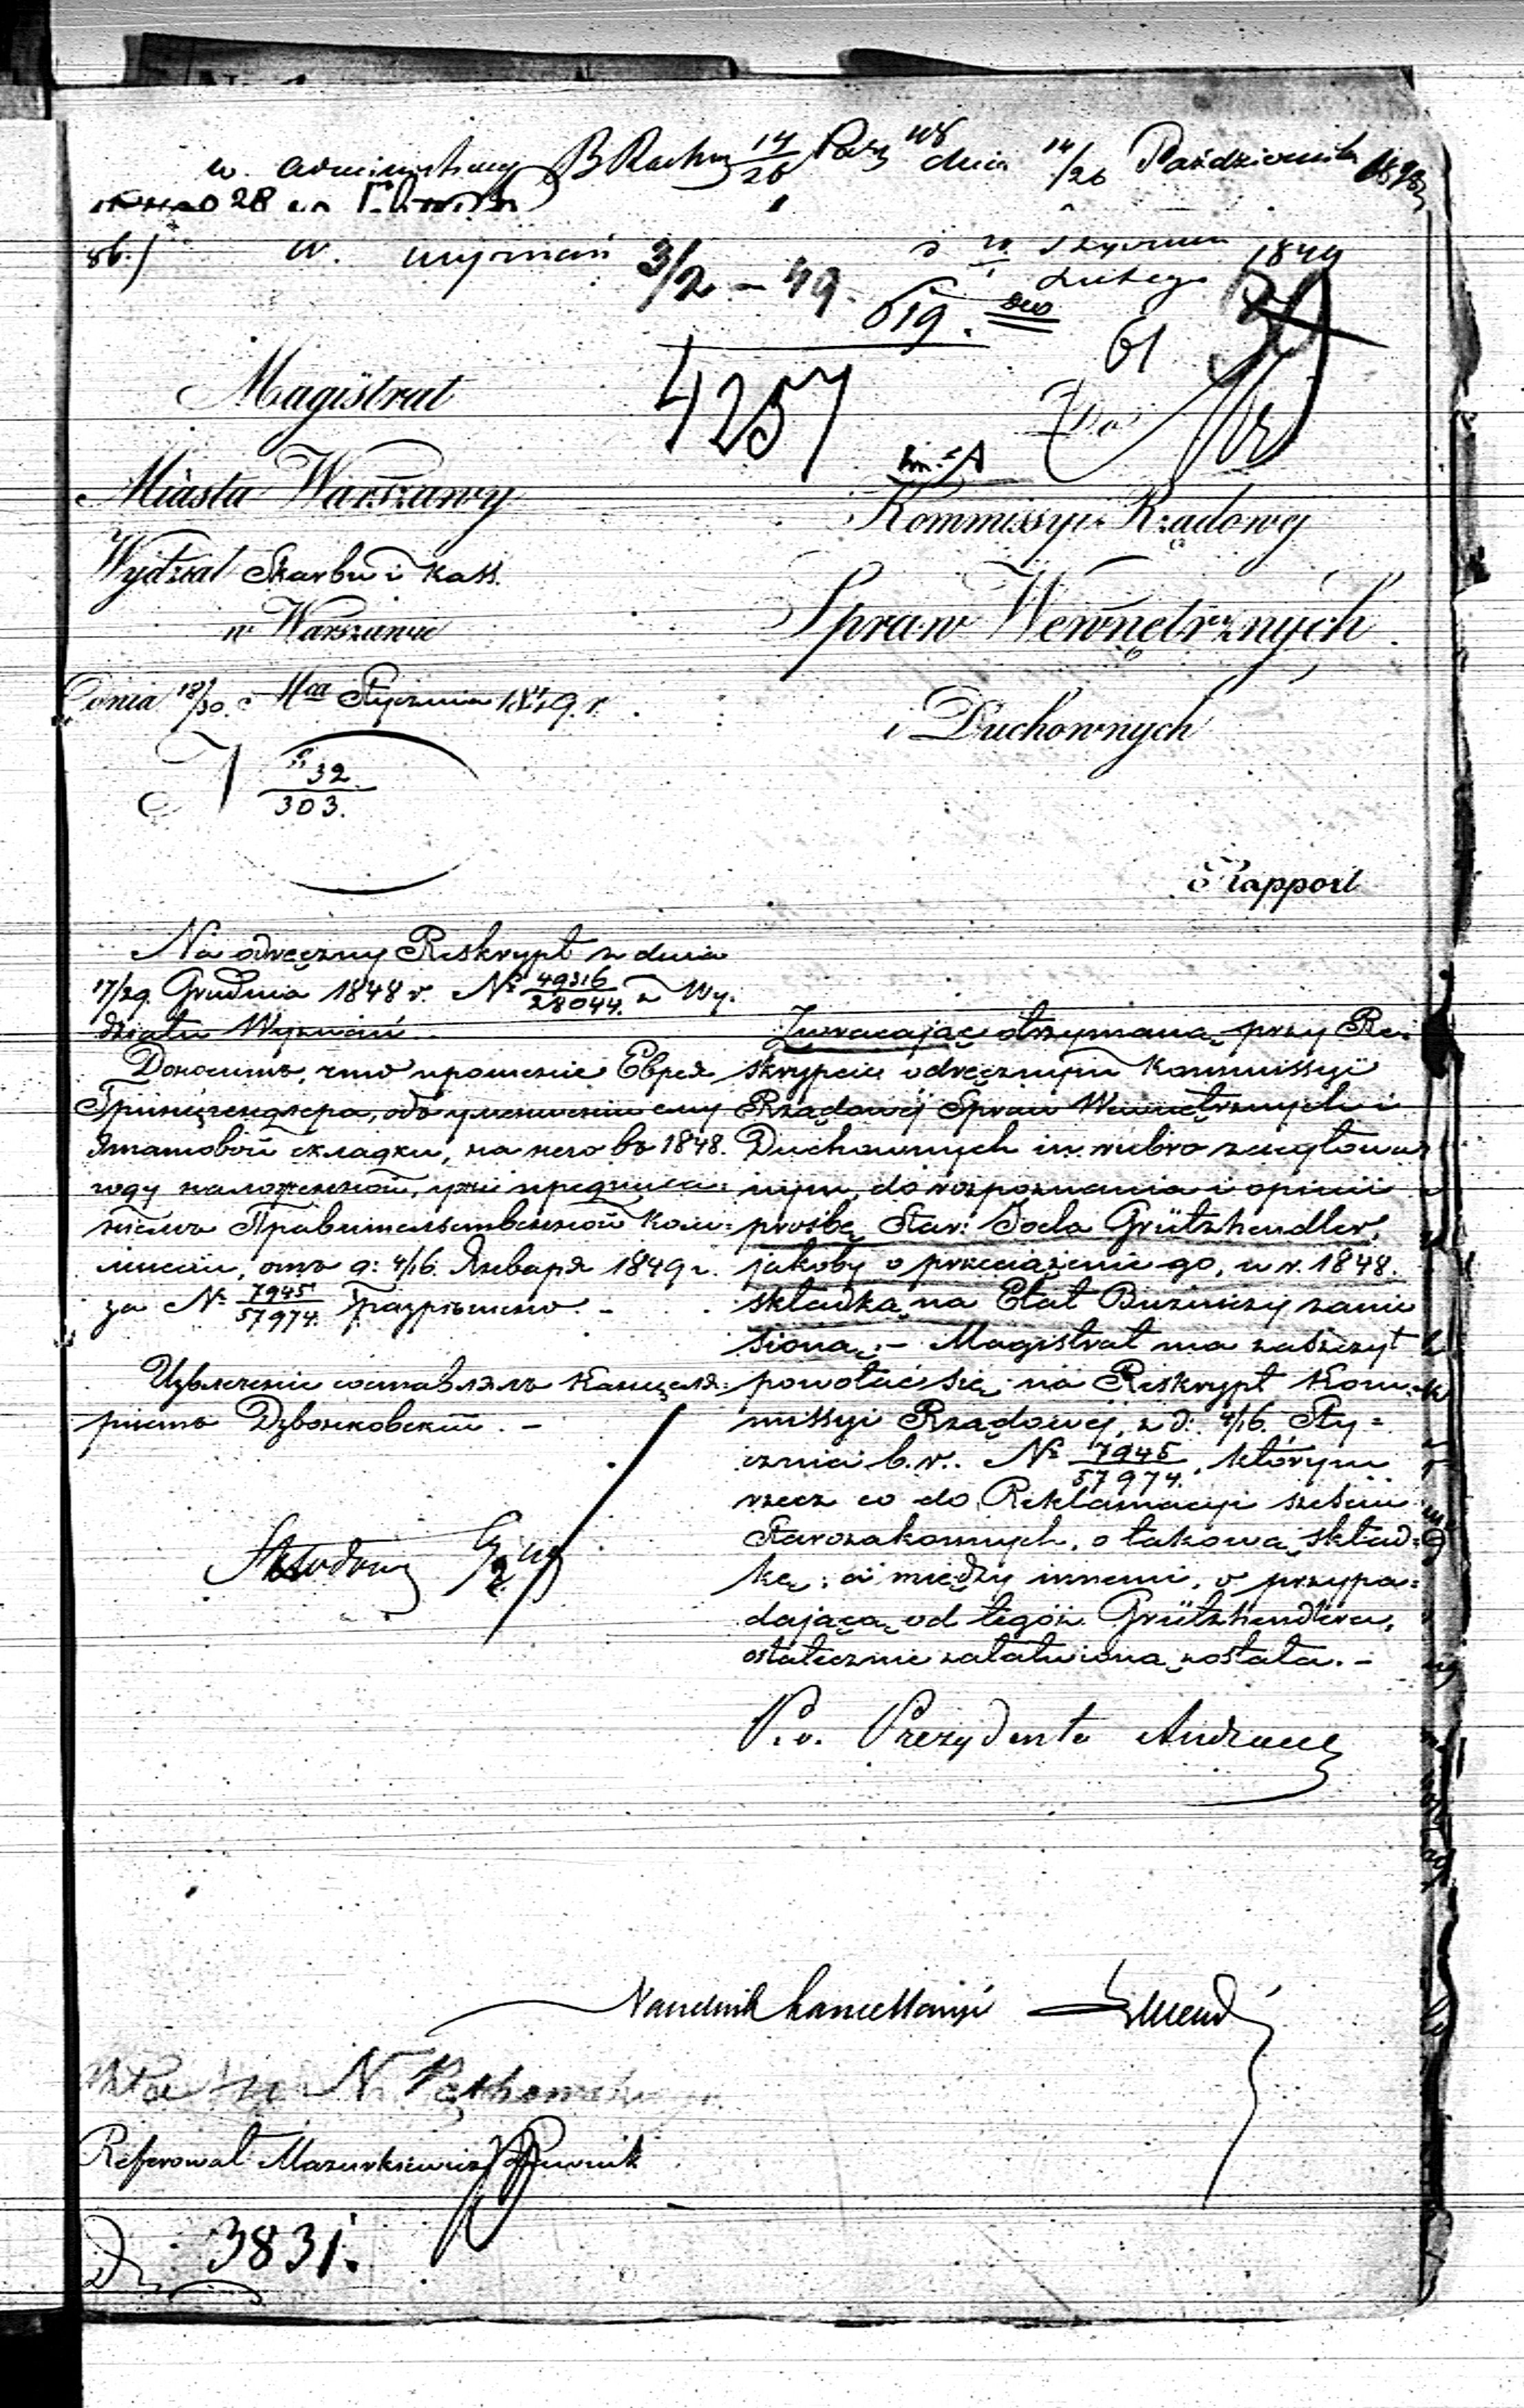 w. dnia 14/26 Października
86.) W. wyznań 3/2 - 49.
Lutego 1849
619.
61
4257
Magistrat
Miasta Warszawy
Wydział Skarbu i Kass.
w Warszawie
Dnia 18/30. Mca Stycznia 1849. r.
32
303.
Kommissyi Rządowej
Spraw Wewnętrznych
i Duchownych
Rapport
Na odręczny Reskrypt z dnia
17/29. Grudnia 1848 r. No 49316/28044. z Wy-
działu Wyznań.
Доноситъ, что прошеніе Еврея
Грицгендлера, объ уменьшеніи ему
этатовой складки, на него въ 1848.
году наложенной, уже предписа=
ніемъ Правительственной Ком=
мисіи, отъ д: 4/16. Января 1849 г.
за No 7945/57974. разрѣшено. -
Извлеченіе составлялъ Канцеля=
ристъ Дзвонковскій. -
Zwracając otrzymaną przy Re=
skrypcie odręcznym Kommissyi
Rządowej Spraw Wewnętrznych i
Duchownych in rubro zacytowa=
nym, do rozpoznania i opinii
prośbę Star: Joela Grützhendler,
jakoby o przeciążenie go, w r. 1848.
składką na Etat Bużniczy zanie
sioną: - Magistrat ma zaszczyt
powołać się na Reskrypt Kom=
missyi Rządowej, z d: 4/16. Sty=
cznia b. r. No 7945/57974. którym
rzecz co do Reklamacyi sześciu
Starozakonnych, o takową skład=
kę; a między innemi, o przypa=
dającą od tegoż Grützhendlera,
ostatecznie załatwioną została. -
P. o. Prezydenta
Naczelnik Kancellaryi
Referował Mazurkiewicz
3831.